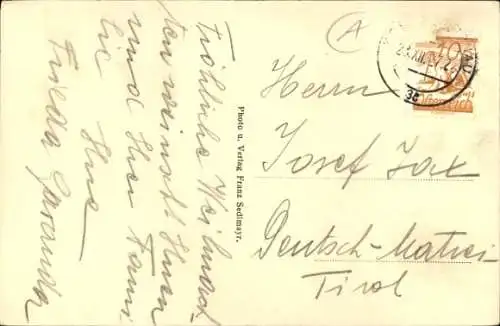 Fröhliche Weihnach-
ten wünscht Ihnen
und Ihrer Fami
lie
Ihre
Frieda
Photo u. Verlag Franz Sedlmayr.
A
10
Österreich
Herrn
Josef Jax
Deutsch-Matrei
Tirol